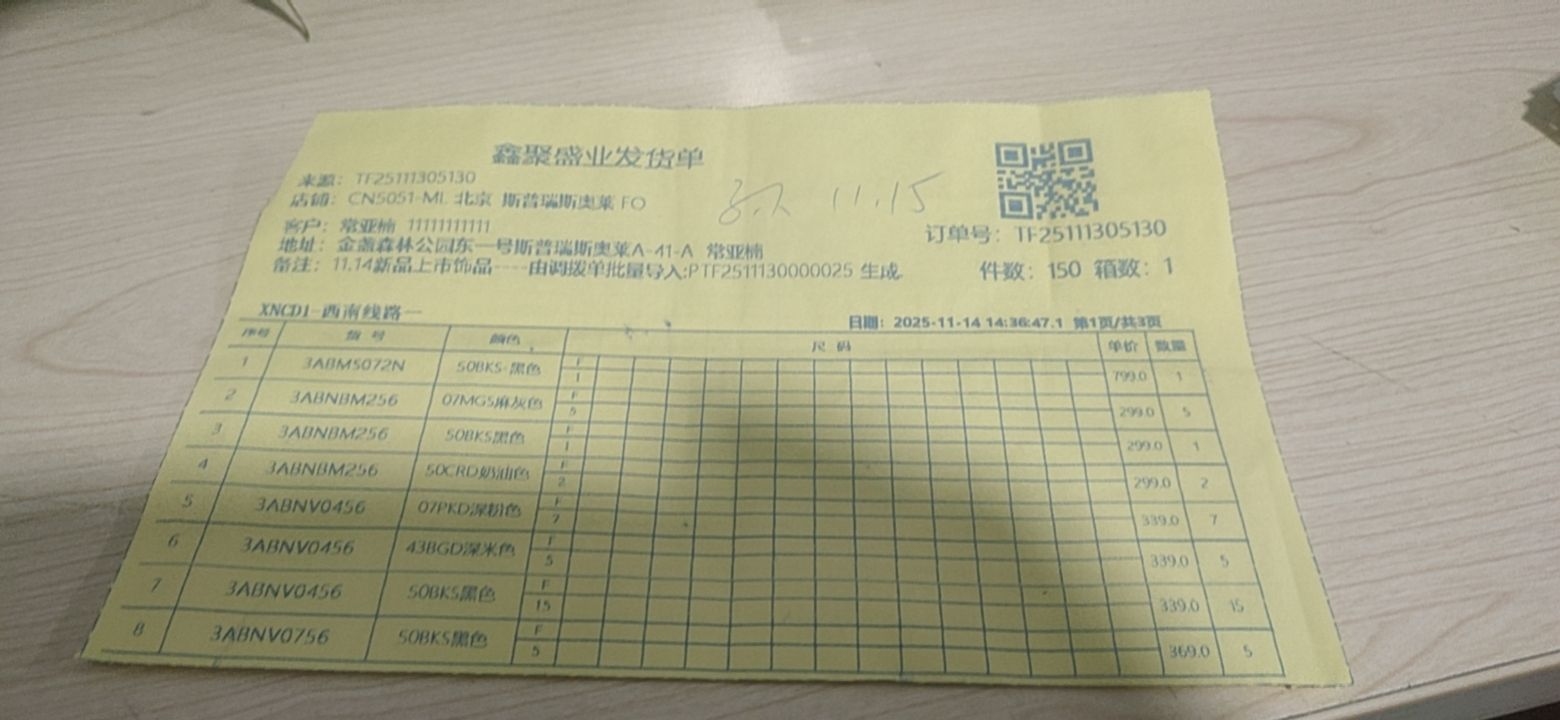 鑫聚盛业发货单
来源：TF25111305130
店铺：CN5051-ML 北京 斯普瑞斯奥莱 FO
11.15
客户：常亚楠 11111111111
订单号：TF25111305130
地址：金盏森林公园东一号斯普瑞斯奥莱A-41-A 常亚楠
备注：11.14新品上市饰品----由调拨单批量导入:PTF2511130000025 生成.
件数：150 箱数：1
XNCD1-西南线路一
日期：2025-11-14 14:36:47.1 第1页/共3页
序号 货 号 颜色 尺 码 单价 数量
1 3ABM5072N 50BKS-黑色 F 1 799.0 1
2 3ABNBM256 07MGS麻灰色 F 5 299.0 5
3 3ABNBM256 50BKS黑色 F 1 299.0 1
4 3ABNBM256 50CRD奶油色 F 2 299.0 2
5 3ABNV0456 07PKD深粉色 F 7 339.0 7
6 3ABNV0456 43BGD深米色 F 5 339.0 5
7 3ABNV0456 50BKS黑色 F 15 339.0 15
8 3ABNV0756 50BKS黑色 F 5 369.0 5